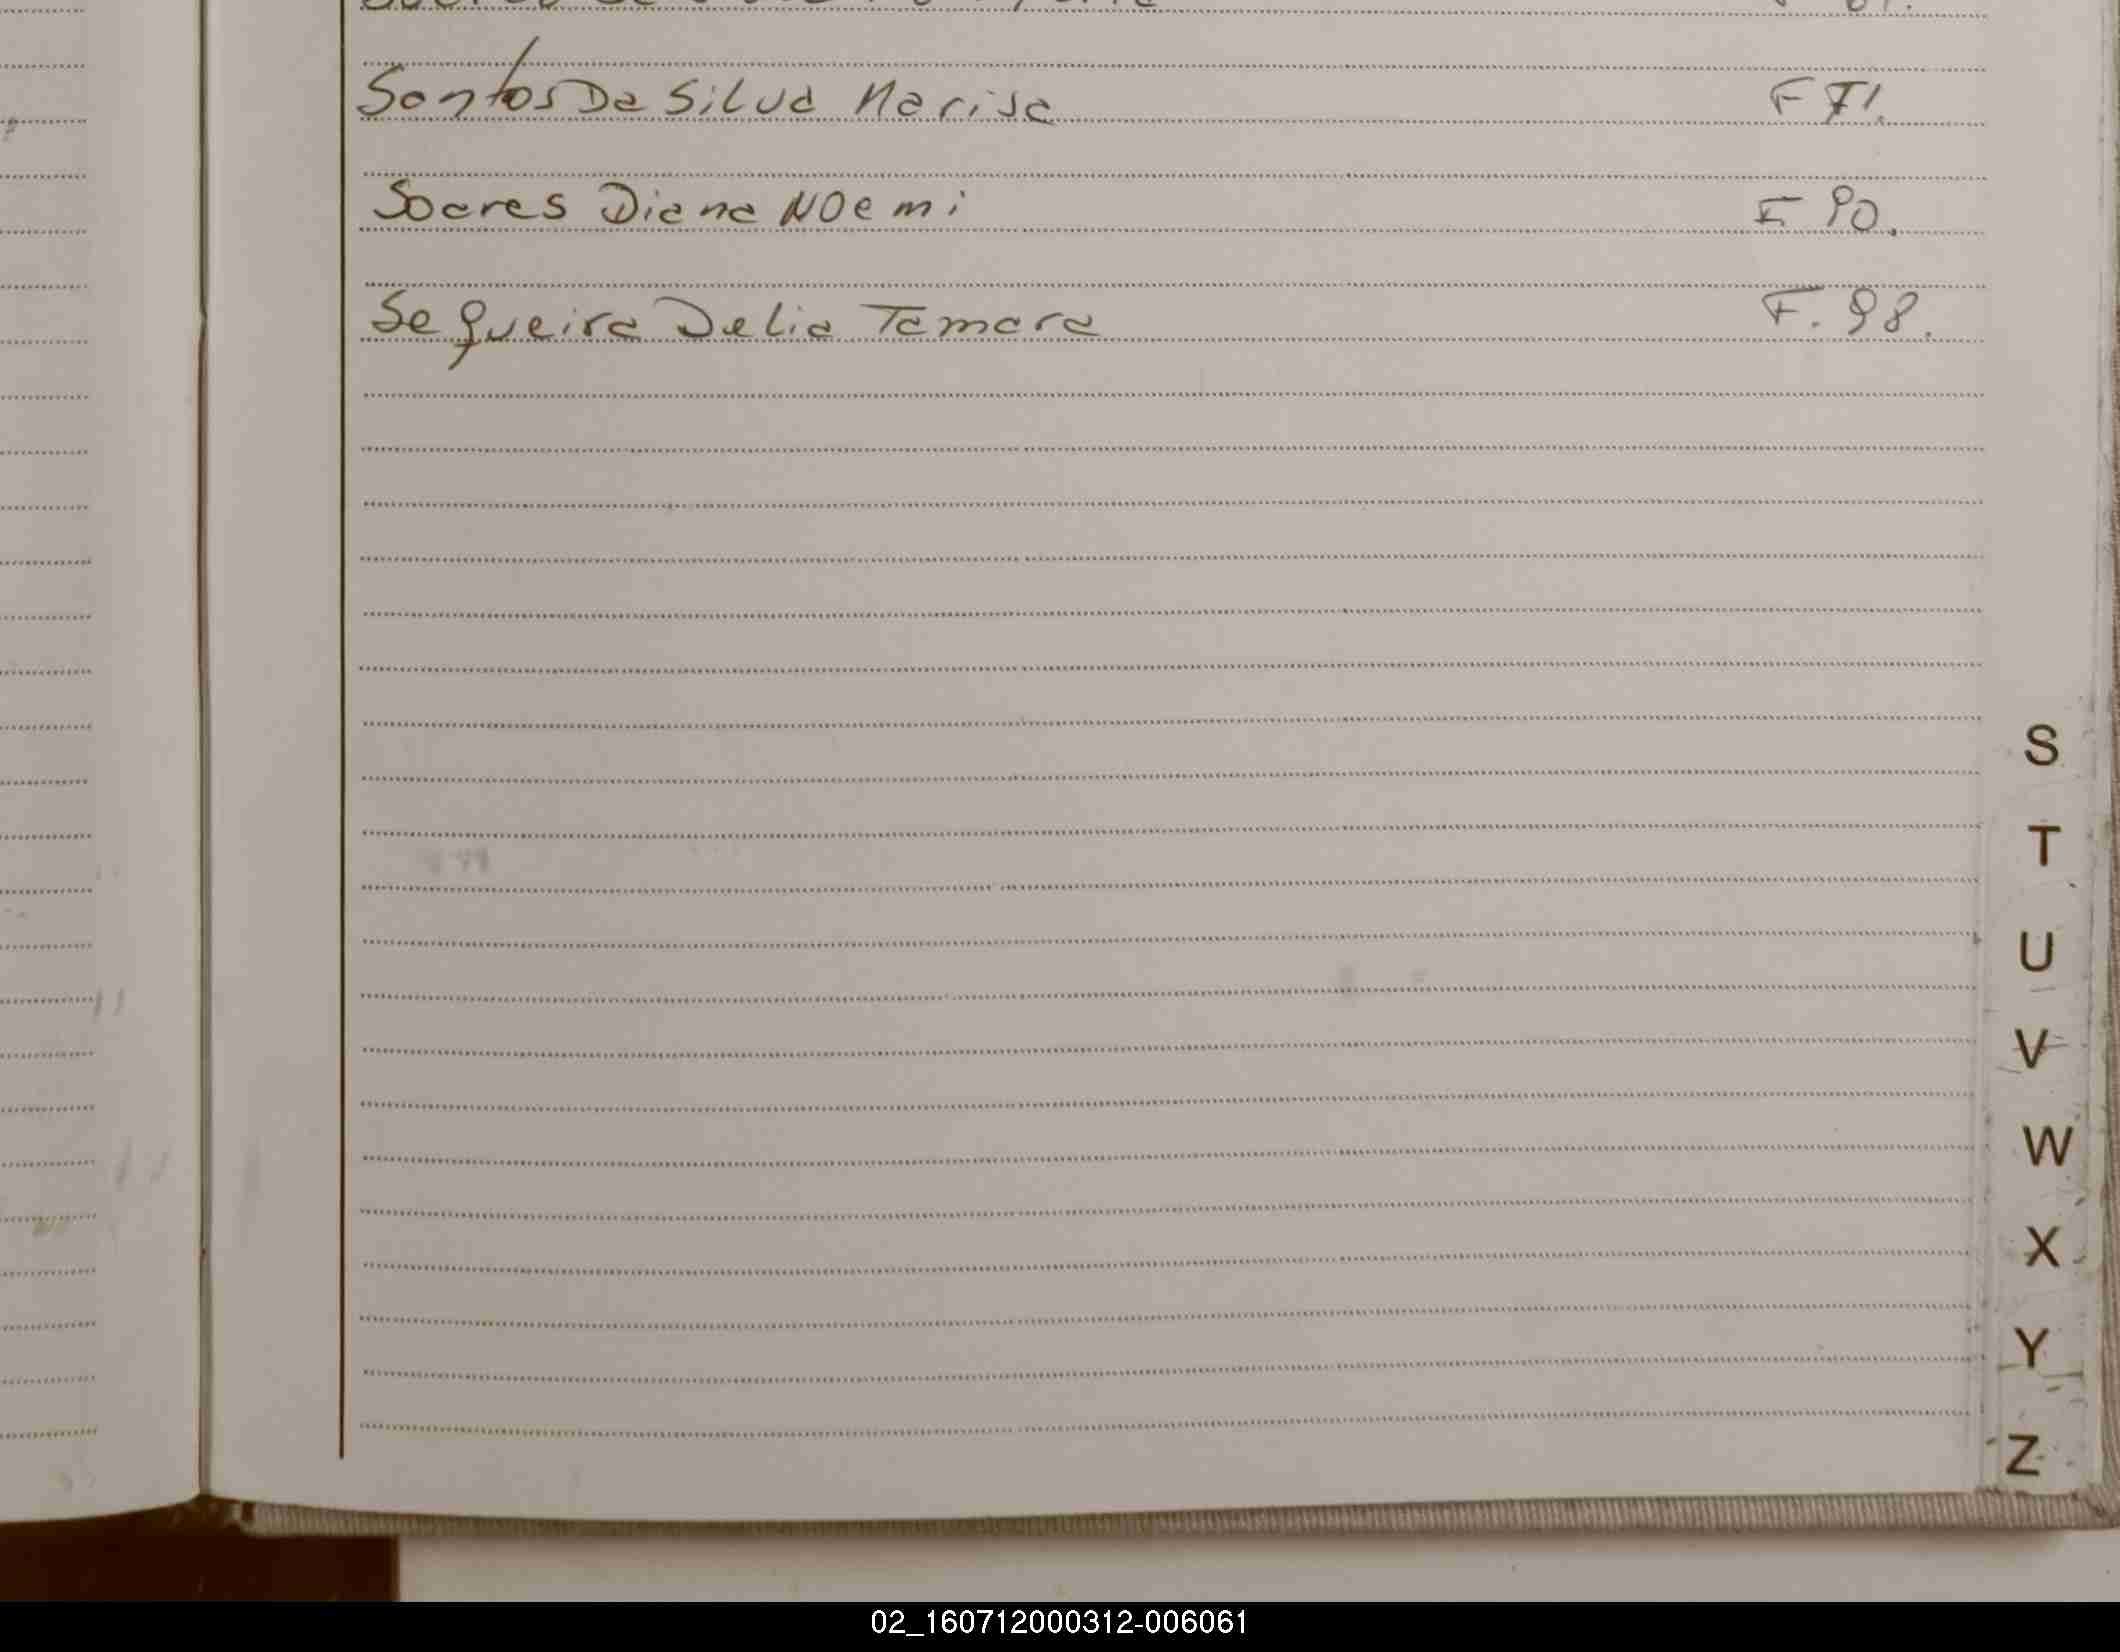 Santos Da Silva Marisa F 71.
Soares Diana NOemi F 90.
Sequeira Delia Tamara F. 98.
S
T
U
V
W
X
Y
Z
02_160712000312-006061